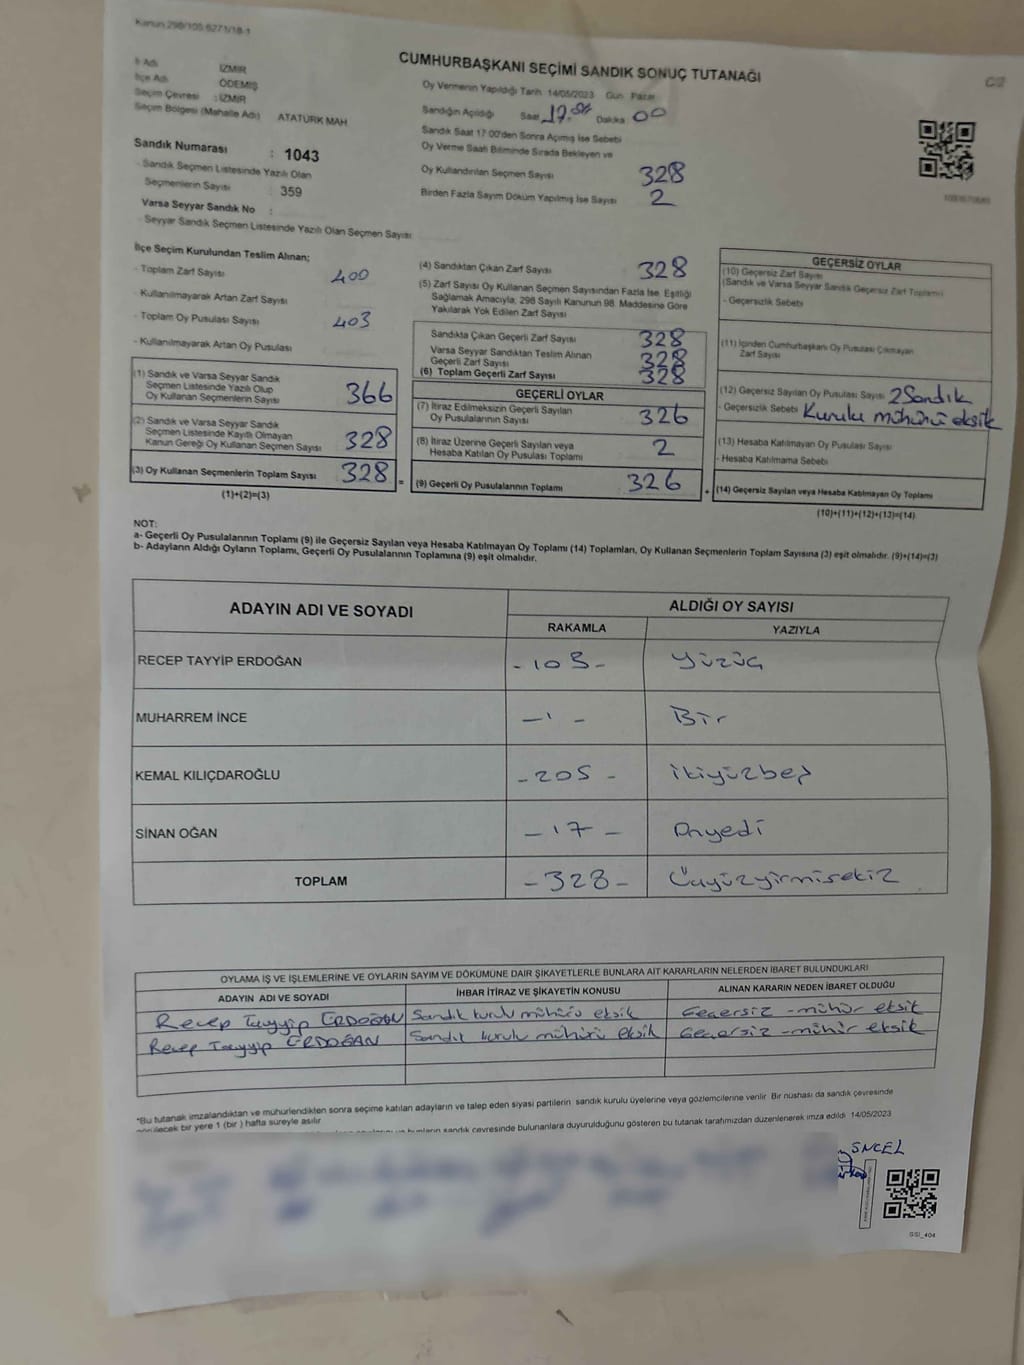 Kanun 298/105 6271/18-1
CUMHURBAŞKANI SEÇİMİ SANDIK SONUÇ TUTANAĞI
C/2
İl Adı İZMİR
İlçe Adı ÖDEMİŞ
Seçim Çevresi : İZMİR
Seçim Bölgesi (Mahalle Adı) ATATÜRK MAH
Oy Vermenin Yapıldığı Tarih 14/05/2023 Gün Pazar
Sandığın Açıldığı Saat Dakika 00
Sandık Saat 17:00'den Sonra Açılmış İse Sebebi
Oy Verme Saati Bitiminde Sırada Bekleyen ve
Oy Kullandırılan Seçmen Sayısı 328
Birden Fazla Sayım Döküm Yapılmış İse Sayısı 2
Sandık Numarası : 1043
- Sandık Seçmen Listesinde Yazılı Olan
Seçmenlerin Sayısı : 359
Varsa Seyyar Sandık No :
- Seyyar Sandık Seçmen Listesinde Yazılı Olan Seçmen Sayısı
İlçe Seçim Kurulundan Teslim Alınan;
- Toplam Zarf Sayısı 400
- Kullanılmayarak Artan Zarf Sayısı
- Toplam Oy Pusulası Sayısı 403
- Kullanılmayarak Artan Oy Pusulası
(1) Sandık ve Varsa Seyyar Sandık
Seçmen Listesinde Yazılı Olup
Oy Kullanan Seçmenlerin Sayısı 366
(2) Sandık ve Varsa Seyyar Sandık
Seçmen Listesinde Kayıtlı Olmayan
Kanun Gereği Oy Kullanan Seçmen Sayısı 328
(3) Oy Kullanan Seçmenlerin Toplam Sayısı 328 =
(1)+(2)=(3)
(4) Sandıktan Çıkan Zarf Sayısı 328
(5) Zarf Sayısı Oy Kullanan Seçmen Sayısından Fazla İse, Eşitliği
Sağlamak Amacıyla, 298 Sayılı Kanunun 98. Maddesine Göre
Yakılarak Yok Edilen Zarf Sayısı
Sandıkta Çıkan Geçerli Zarf Sayısı 328
Varsa Seyyar Sandıktan Teslim Alınan
Geçerli Zarf Sayısı 328
(6) Toplam Geçerli Zarf Sayısı 328
GEÇERLİ OYLAR
(7) İtiraz Edilmeksizin Geçerli Sayılan
Oy Pusulalarının Sayısı 326
(8) İtiraz Üzerine Geçerli Sayılan veya
Hesaba Katılan Oy Pusulası Toplamı 2
(9) Geçerli Oy Pusulalarının Toplamı 326 +
GEÇERSİZ OYLAR
(10) Geçersiz Zarf Sayısı
(Sandık ve Varsa Seyyar Sandık Geçersiz Zarf Toplamı)
- Geçersizlik Sebebi
(11) İçinden Cumhurbaşkanı Oy Pusulası Çıkmayan
Zarf Sayısı
(12) Geçersiz Sayılan Oy Pusulası Sayısı 2 Sandık
- Geçersizlik Sebebi Kurulu mühürü eksik
(13) Hesaba Katılmayan Oy Pusulası Sayısı
- Hesaba Katılmama Sebebi
(14) Geçersiz Sayılan veya Hesaba Katılmayan Oy Toplamı
(10)+(11)+(12)+(13)=(14)
NOT:
a- Geçerli Oy Pusulalarının Toplamı (9) ile Geçersiz Sayılan veya Hesaba Katılmayan Oy Toplamı (14) Toplamları, Oy Kullanan Seçmenlerin Toplam Sayısına (3) eşit olmalıdır. (9)+(14)=(3)
b- Adayların Aldığı Oyların Toplamı, Geçerli Oy Pusulalarının Toplamına (9) eşit olmalıdır.
ADAYIN ADI VE SOYADI ALDIĞI OY SAYISI
RAKAMLA YAZIYLA
RECEP TAYYİP ERDOĞAN - 103 - Yüzüç
MUHARREM İNCE - 1 - Bir
KEMAL KILIÇDAROĞLU - 205 - İkiyüzbeş
SİNAN OĞAN - 17 - Onyedi
TOPLAM - 328 - Üçyüzyirmisekiz
OYLAMA İŞ VE İŞLEMLERİNE VE OYLARIN SAYIM VE DÖKÜMÜNE DAİR ŞİKAYETLERLE BUNLARA AİT KARARLARIN NELERDEN İBARET BULUNDUKLARI
ADAYIN ADI VE SOYADI İHBAR İTİRAZ VE ŞİKAYETİN KONUSU ALINAN KARARIN NEDEN İBARET OLDUĞU
Recep Tayyip ERDOĞAN Sandık kurulu mühürü eksik Geçersiz - mühür eksik
Recep Tayyip ERDOĞAN Sandık kurulu mühürü eksik Geçersiz - mühür eksik
*Bu tutanak imzalandıktan ve mühürlendikten sonra seçime katılan adayların ve talep eden siyasi partilerin sandık kurulu üyelerine veya gözlemcilerine verilir. Bir nüshası da sandık çevresinde
görülecek bir yere 1 (bir) hafta süreyle asılır
sandık çevresinde bulunanlara duyurulduğunu gösteren bu tutanak tarafımızdan düzenlenerek imza edildi 14/05/2023
SSI_404